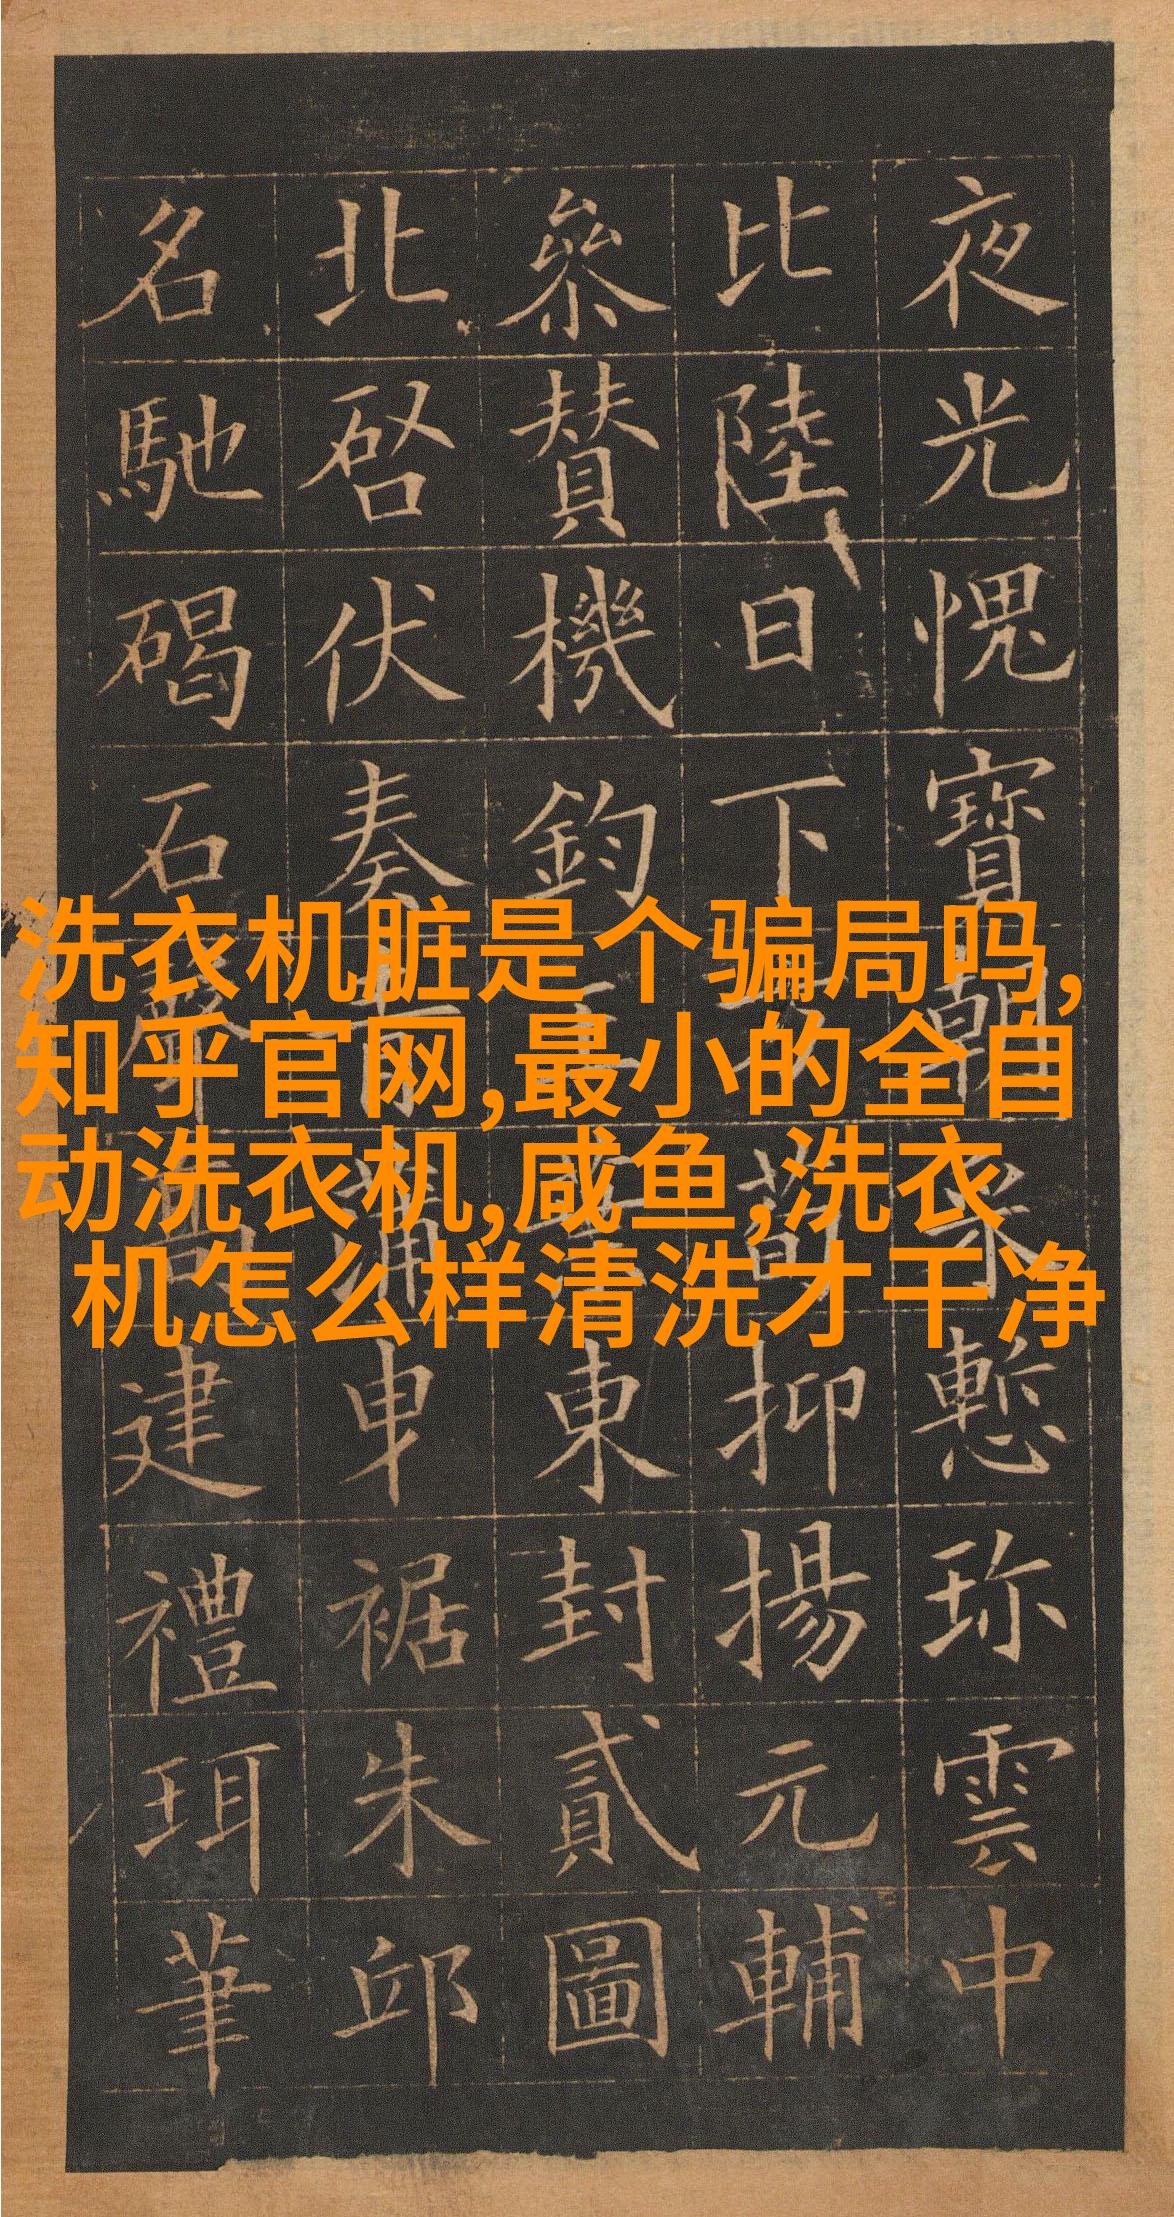 夜光愧寶朝采慙珎雲中
比陸日下荀抑揚元輔
叅賛機鈞東封貳圖
北啓伏奏青蒲曳裾朱邱
名馳碣石聲高建禮珥筆
洗衣机脏是个骗局吗,
知乎官网,最小的全自
动洗衣机,咸鱼,洗衣
机怎么样清洗才干净